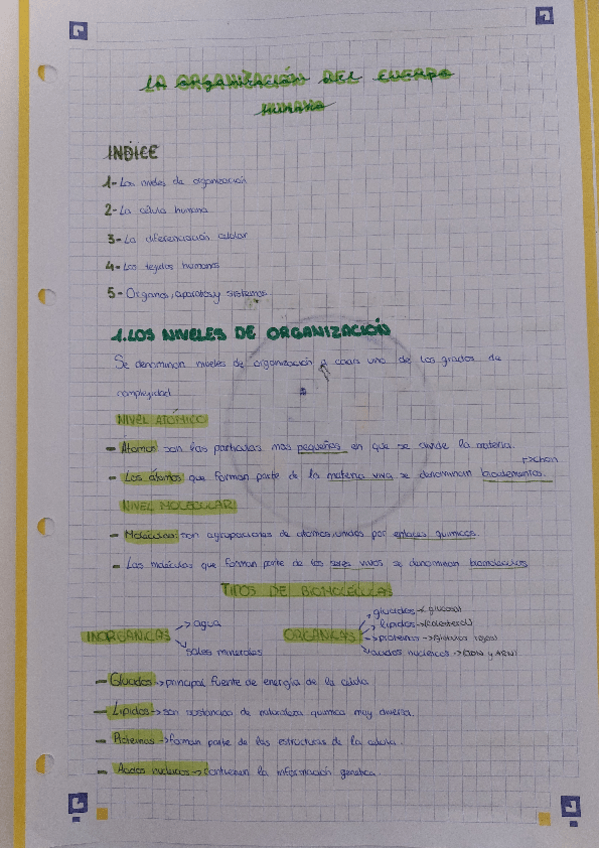 LA ORGANIZACIÓN DEL CUERPO
HUMANO
INDICE
1- Los niveles de organización
2- La célula humana
3- La diferenciación celular
4- Los tejidos humanos
5- Organos, aparatos y sistemas
1. LOS NIVELES DE ORGANIZACIÓN
Se denominan niveles de organización a cada uno de los grados de
complejidad
NIVEL ATÓMICO
- Átomos son las particulas mas pequeñas en que se divide la materia.
- Los átomos que forman parte de la materia viva se denominan bioelementos. →chon
NIVEL MOLECULAR
- Moléculas: son agrupaciones de atomos unidos por enlaces químicos.
- Las moléculas que forman parte de los seres vivos se denominan biomoléculas
TIPOS DE BIOMOLÉCULAS
INORGÁNICAS → agua
→ sales minerales
ORGÁNICAS → glucidos → (glucosa)
→ lipidos → (colesterol)
→ proteinas →
→ acidos nucleicos → (ADN y ARN)
- Glucidos → principal fuente de energía de la célula
- Lipidos → son sustancias de naturaleza quimica muy diversa.
- Proteinas → forman parte de las estructuras de la celula.
- Acidos nucleicos → contienen la información genetica.